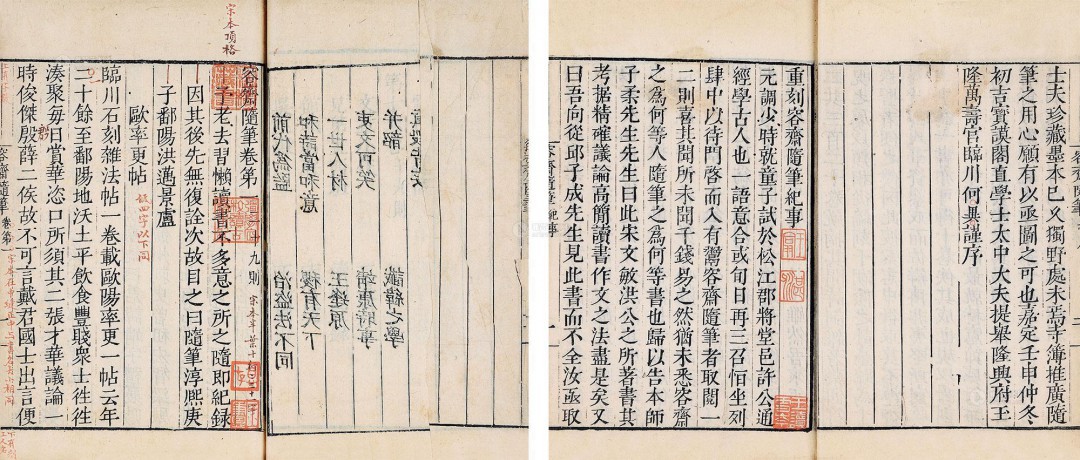 士夫珍藏墨本已又獨野處未焉寺簿推廣隨
筆之用心願有以亟圖之可也嘉定壬申仲冬
初吉寶謨閣直學士太中大夫提舉隆興府玉
隆萬壽宮臨川何異謹序
重刻容齋隨筆紀事
元調少時就童子試於松江郡將堂邑許公通
經學古人也一語意合或旬日再三召恒坐列
肆中以待門啓而入有鬻容齋隨筆者取閱一
二則喜其聞所未聞千錢易之然猶未悉容齋
之為何等人隨筆之為何等書也歸以告本師
子柔先生先生曰此宋文敏洪公之所著書其
考据精確議論高簡讀書作文之法盡是矣又
曰吾向從邱子成先生見此書而不全汝亟取
并韶 讖緯之學
東文可笑 靖康時事
一世人材 王逢原
和詩當和意 稷有天下
前代為鑑 治盜法不同
宋本頂格
容齋隨筆卷第 九則
予老去習懶讀書不多意之所之隨即紀錄
因其後先無復詮次故目之曰隨筆淳熙庚
子鄱陽洪邁景盧
歐率更帖 四字以下同
臨川石刻雜法帖一卷載歐陽率更一帖云年
二十餘至鄱陽地沃土平飲食豐賤衆士往往
湊聚每日賞華恣口所須其二張才華議論一
時俊傑殷薛二侯故不可言戴君國士出言便
容齋隨筆 卷第一